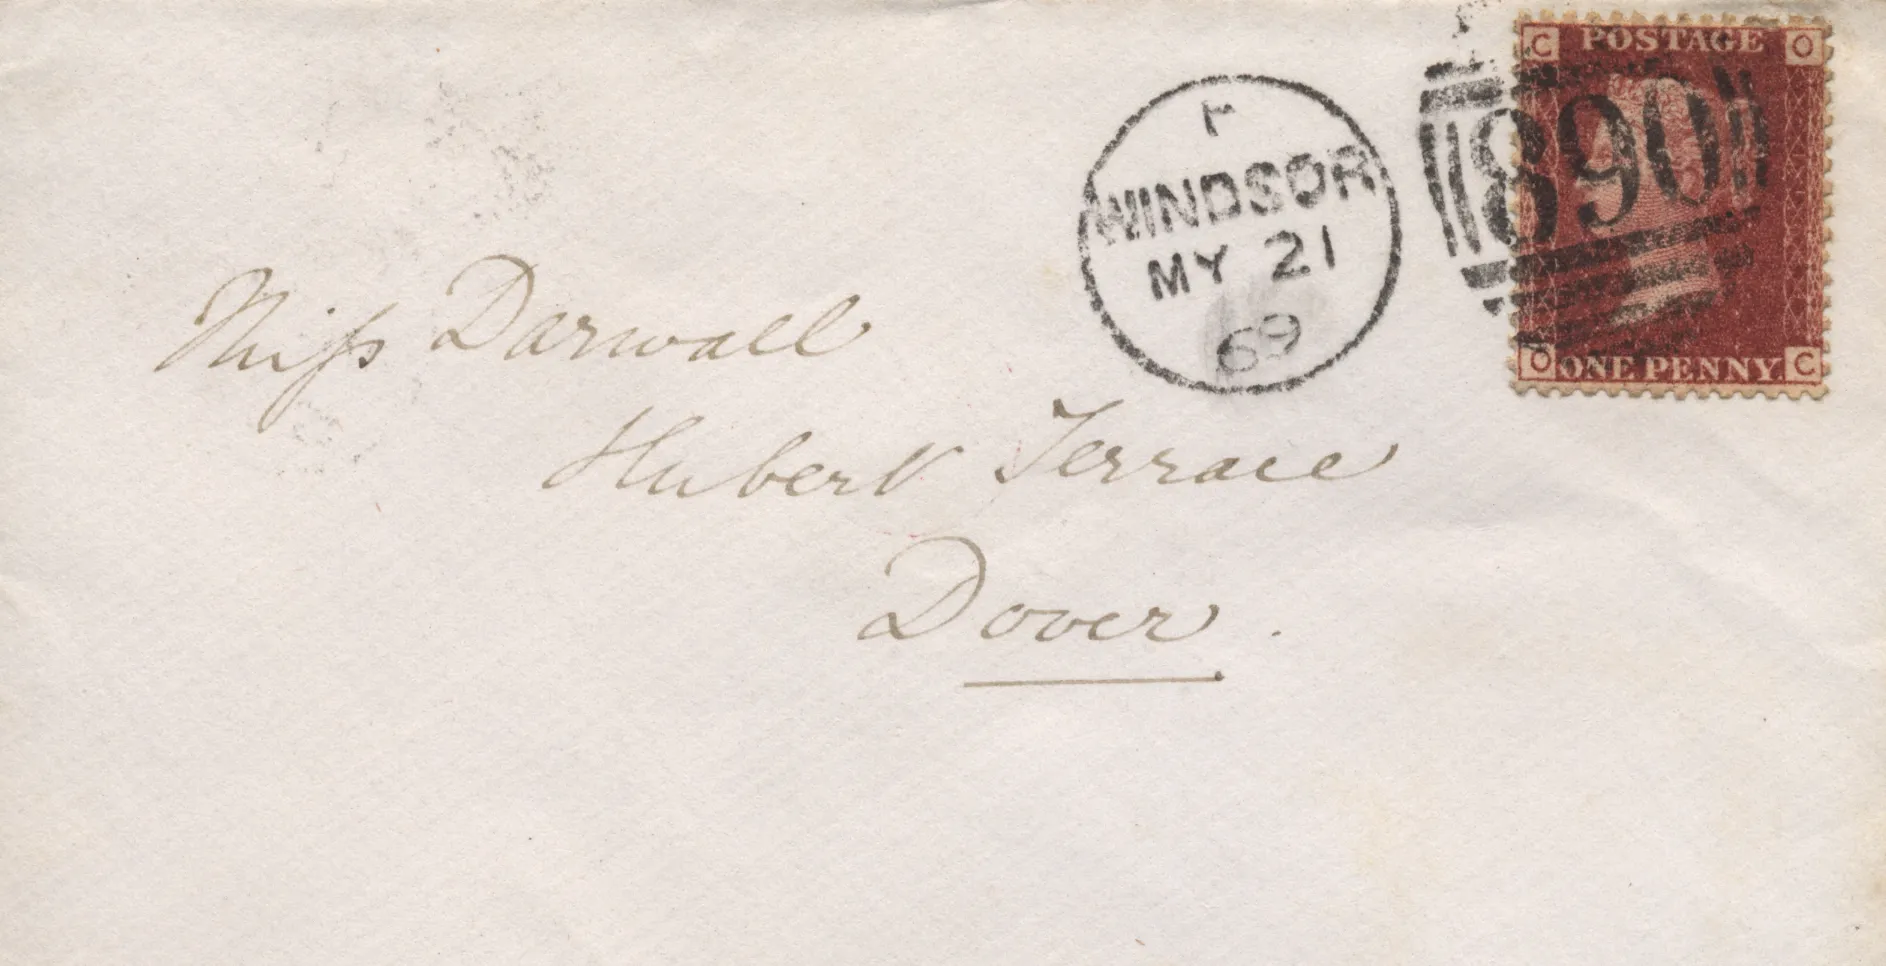 C POSTAGE O
890
F
WINDSOR
MY 21
69
O ONE PENNY. C
Miss Darwall
Hubert Terrace
Dover.